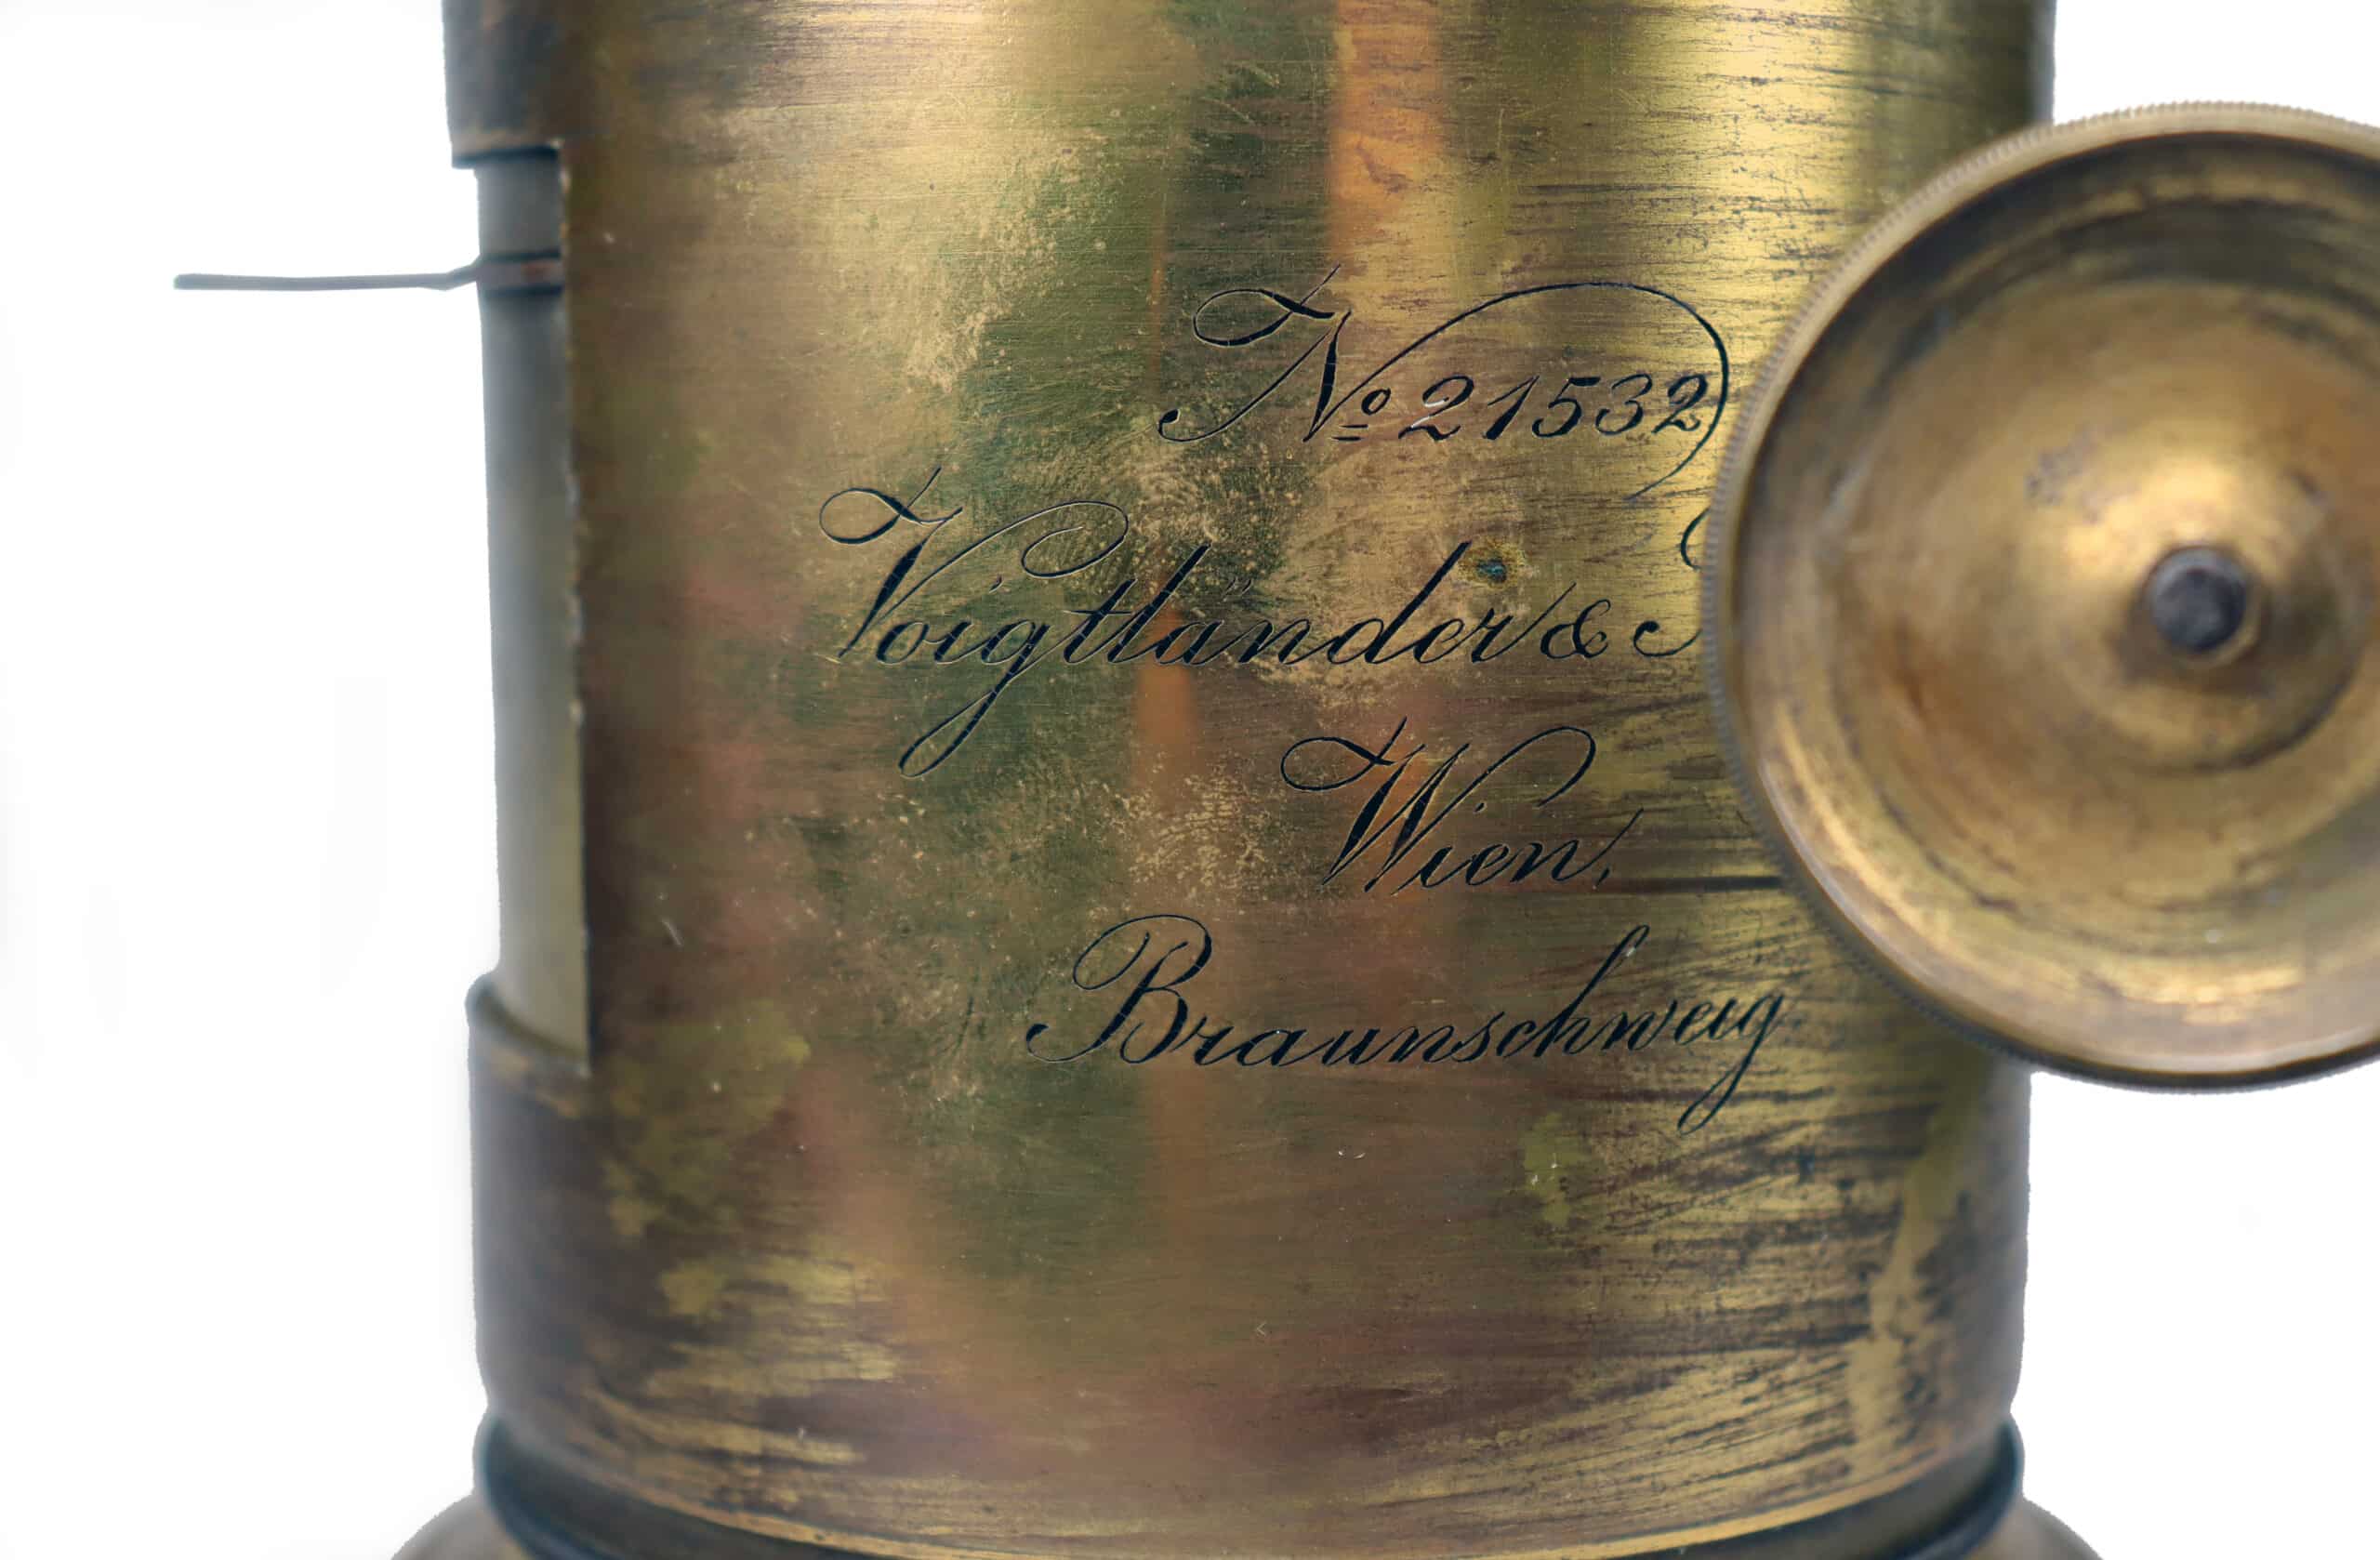 No 21532
Voigtländer &
Wien,
Braunschweig